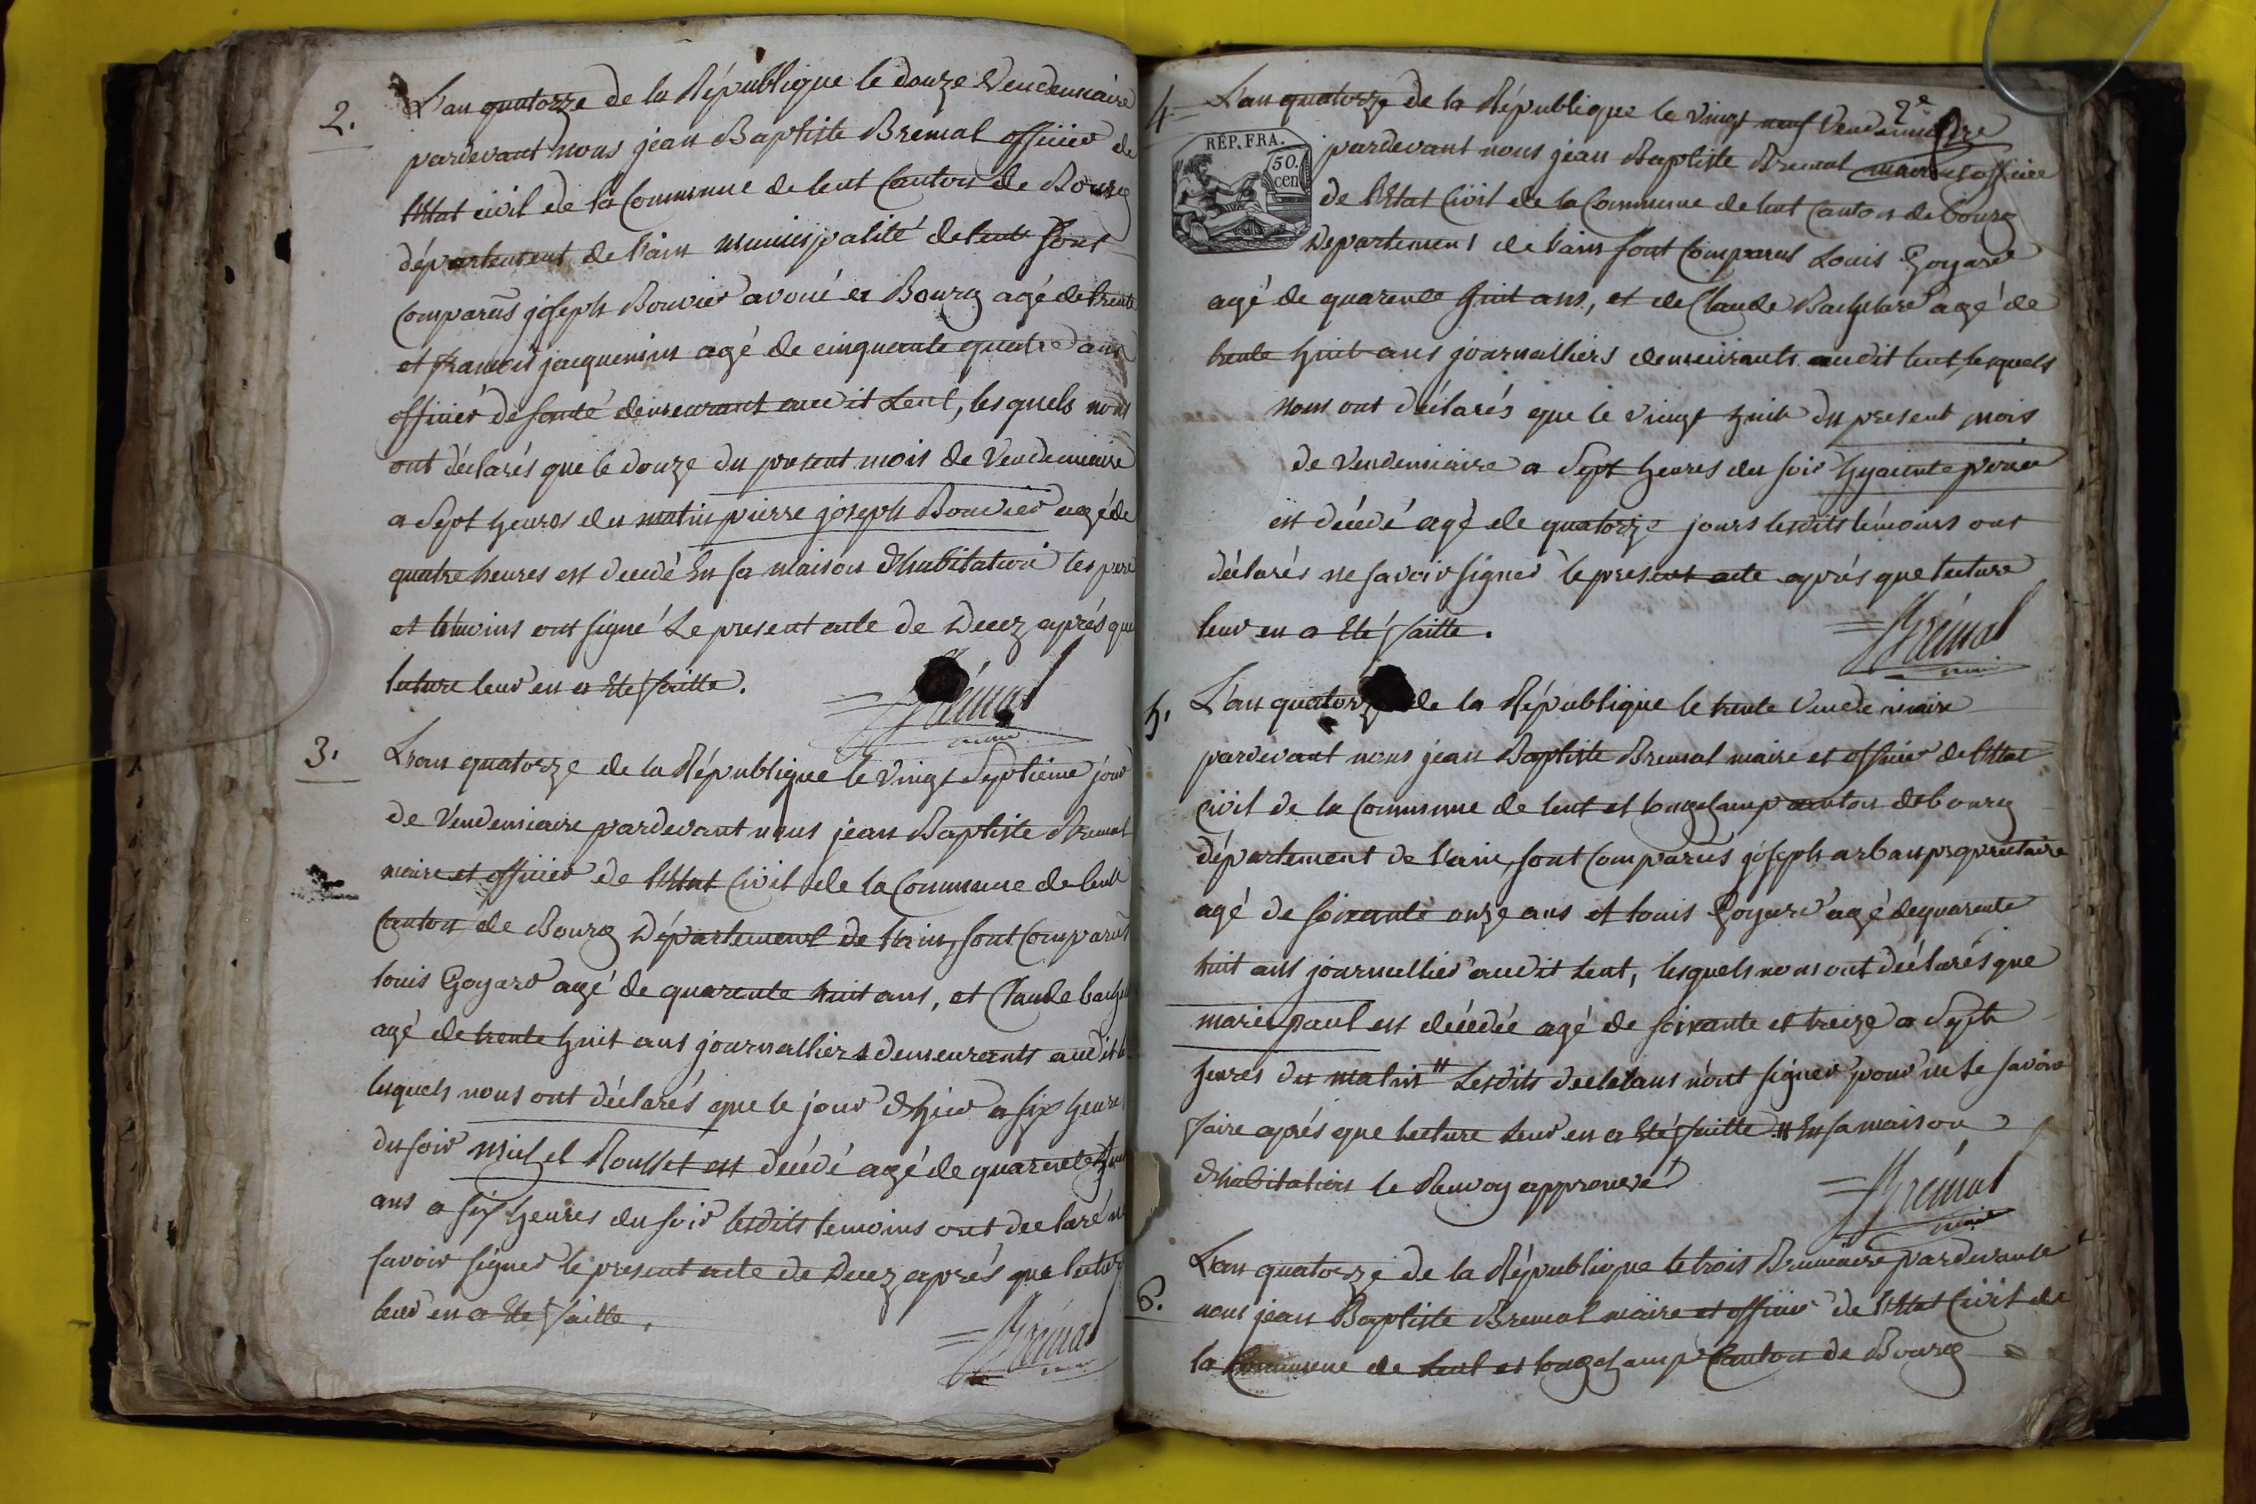 2.
L'an quatorze de la République le douze Vendemiaire
pardevant nous jean Baptiste Bremal officier de
l'Etat civil de la Commune de lent Canton de Bourg
département de l'ain municipalité de lent sont
Comparus joseph Bouvier avoué a Bourg agé de trente
et francois jacquemin agé de cinquante quatre ans
officier de santé demeurant audit Lent, lesquels nous
ont déclarés que le douze du present mois de Vendemiaire
a Sept heures du matin pierre joseph Bouvier agé de
quatre heures est decedé En sa maison d'habitation les pere
et temoins ont signé Le present acte de Decez aprés que
lecture leur en a Eté faitte.
Brémal
maire
3.
L'an quatorze de la République le Vingt Septieme jour
de Vendemiaire pardevant nous jean Baptiste Bremal
maire et officier de l'Etat Civil de la Commune de lent
Canton de Bourg Département de l'ain, sont Comparus
louis Goyard agé de quarente huit ans, et Claude
agé de trente huit ans journalliers demeurants audit
lesquels nous ont déclarés que le jour d'hier a six heures
du soir Michel Rousset est décédé agé de quarente
ans a six heures du soir lesdits temoins ont declaré ne
savoir signer le present acte de Decez aprés que lecture
leur en a Eté faitte.
Brémal
maire
2e
4
L'an quatorze de la République le Vingt neuf Vendemiaire
RÉP. FRA.
50.
cen
pardevant nous jean Baptiste Bremal maire et officier
de l'Etat Civil de la Commune de lent Canton de bourg
Departement de l'ain sont Comparus Louis Goyard
agé de quarente huit ans, et de Claude agé de
trente huit ans journalliers demeurants audit lent lesquels
nous ont déclarés que le vingt huit du present mois
de Vendemiaire a Sept heures du soir hyacinte
est décedé agé de quatorze jours lesdits témoins ont
déclarés ne savoir signer le present acte aprés que lecture
leur en a Eté faitte.
Brémal
maire
5.
L'an quatorze de la République le trente Vendemiaire
pardevant nous jean Baptiste Bremal maire et officier de l'Etat
civil de la Commune de lent et longchamp canton de bourg
département de l'ain, sont Comparus joseph arban propriétaire
agé de soixante onze ans et louis Goyard agé de quarente
huit ans journallier audit Lent, lesquels nous ont déclarés que
marie paul est décédée agé de soixante et treize a Sept
heures du matin " Lesdits declarans n'ont signer pour ne Le savoir
faire aprés que lecture Leur en a Eté faitte " En sa maison
d'habitation le Renvoy approuvé
Brémal
maire
6.
L'an quatorze de la République le trois Brumaire pardevant
nous jean Baptiste Bremal maire et officier de l'Etat Civil de
la Commune de Lent et longchamp Canton de Bourg